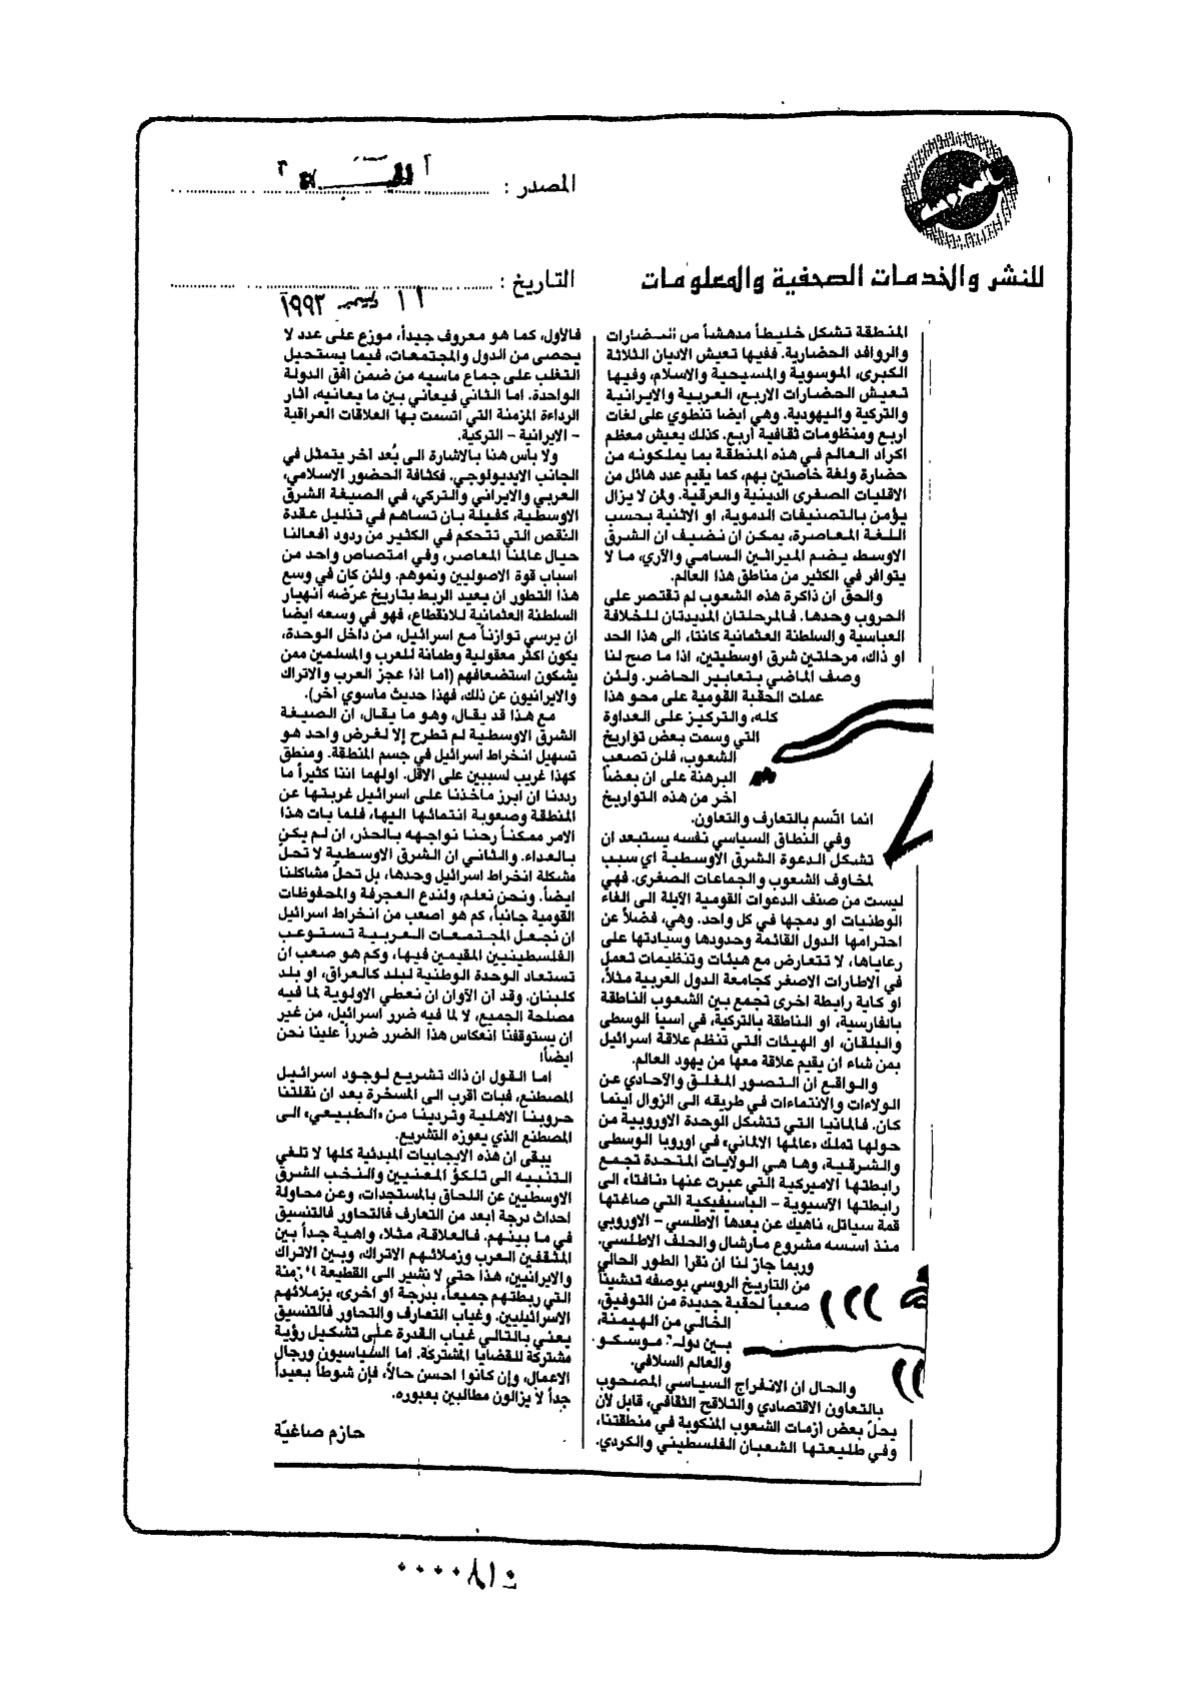 المصدر :
للنشر والخدمات الصحفية والمعلومات
التاريخ :
١٩٩٣ ديسمبر ١٦
المنطقة تشكل خليطاً مدهشاً من الحضارات
والروافد الحضارية. ففيها تعيش الاديان الثلاثة
الكبرى، الموسوية والمسيحية والاسلام، وفيها
تعيش الحضارات الاربع، العربية والايرانية
والتركية واليهودية. وهي ايضا تنطوي على لغات
اربع ومنظومات ثقافية اربع. كذلك يعيش معظم
اكراد العالم في هذه المنطقة بما يملكونه من
حضارة ولغة خاصتين بهم، كما يقيم عدد هائل من
الاقليات الصغرى الدينية والعرقية. ولمن لا يزال
يؤمن بالتصنيفات الدموية، او الاثنية بحسب
اللغة المعاصرة، يمكن ان نضيف ان الشرق
الاوسط يضم الميراثين السامي والآري، ما لا
يتوافر في الكثير من مناطق هذا العالم.
والحق ان ذاكرة هذه الشعوب لم تقتصر على
الحروب وحدها. فالمرحلتان المديدتان للخلافة
العباسية والسلطنة العثمانية كانتا، الى هذا الحد
او ذاك، مرحلتين شرق اوسطيتين، اذا ما صح لنا
وصف الماضي بتعابير الحاضر. ولئن
عملت الحقبة القومية على محو هذا
كله، والتركيز على العداوة
التي وسمت بعض تواريخ
الشعوب، فلن تصعب
البرهنة على ان بعضاً
آخر من هذه التواريخ
انما اتّسم بالتعارف والتعاون.
وفي النطاق السياسي نفسه يستبعد ان
تشكل الدعوة الشرق الاوسطية اي سبب
لمخاوف الشعوب والجماعات الصغرى. فهي
ليست من صنف الدعوات القومية الآيلة الى الغاء
الوطنيات او دمجها في كل واحد. وهي، فضلاً عن
احترامها الدول القائمة وحدودها وسيادتها على
رعاياها، لا تتعارض مع هيئات وتنظيمات تعمل
في الاطارات الاصغر كجامعة الدول العربية مثلاً،
او كاية رابطة اخرى تجمع بين الشعوب الناطقة
بالفارسية، او الناطقة بالتركية، في آسيا الوسطى
والبلقان، او الهيئات التي تنظم علاقة اسرائيل
بمن شاء ان يقيم علاقة معها من يهود العالم.
والواقع ان التصور المغلق والآحادي عن
الولاءات والانتماءات في طريقه الى الزوال اينما
كان. فالمانيا التي تتشكل الوحدة الاوروبية من
حولها تملك «عالمها الالماني» في اوروبا الوسطى
والشرقية، وها هي الولايات المتحدة تجمع
رابطتها الاميركية التي عبرت عنها «نافتا» الى
رابطتها الآسيوية – الباسيفيكية التي صاغتها
قمة سياتل، ناهيك عن بعدها الاطلسي – الاوروبي
منذ اسسه مشروع مارشال والحلف الاطلسي.
وربما جاز لنا ان نقرأ الطور الحالي
من التاريخ الروسي بوصفه تدشيناً
صعباً لحقبة جديدة من التوفيق،
الخالي من الهيمنة،
بين دولة موسكو
والعالم السلافي.
والحال ان الانفراج السياسي المصحوب
بالتعاون الاقتصادي والتلاقح الثقافي، قابل لان
يحلّ بعض ازمات الشعوب المنكوبة في منطقتنا،
وفي طليعتها الشعبان الفلسطيني والكردي.
فالأول، كما هو معروف جيداً، موزع على عدد لا
يحصى من الدول والمجتمعات، فيما يستحيل
التغلب على جماع مآسيه من ضمن افق الدولة
الواحدة. اما الثاني فيعاني بين ما يعانيه، آثار
الرداءة المزمنة التي اتسمت بها العلاقات العراقية
– الايرانية – التركية.
ولا بأس هنا بالاشارة الى بُعد آخر يتمثل في
الجانب الايديولوجي. فكثافة الحضور الاسلامي،
العربي والايراني والتركي، في الصيغة الشرق
الاوسطية، كفيلة بان تساهم في تذليل عقدة
النقص التي تتحكم في الكثير من ردود افعالنا
حيال عالمنا المعاصر، وفي امتصاص واحد من
اسباب قوة الاصوليين ونموهم. ولئن كان في وسع
هذا التطور ان يعيد الربط بتاريخ عرّضه انهيار
السلطنة العثمانية للانقطاع، فهو في وسعه ايضا
ان يرسي توازناً مع اسرائيل، من داخل الوحدة،
يكون اكثر معقولية وطمانة للعرب والمسلمين ممن
يشكون استضعافهم (اما اذا عجز العرب والاتراك
والايرانيون عن ذلك، فهذا حديث مأسوي آخر).
مع هذا قد يقال، وهو ما يقال، ان الصيغة
الشرق الاوسطية لم تطرح إلا لغرض واحد هو
تسهيل انخراط اسرائيل في جسم المنطقة. ومنطق
كهذا غريب لسببين على الاقل. اولهما اننا كثيراً ما
رددنا ان ابرز مآخذنا على اسرائيل غربتها عن
المنطقة وصعوبة انتمائها اليها، فلما بات هذا
الامر ممكناً رحنا نواجهه بالحذر، ان لم يكن
بالعداء. والثاني ان الشرق الاوسطية لا تحلّ
مشكلة انخراط اسرائيل وحدها، بل تحلّ مشاكلنا
ايضاً. ونحن نعلم، ولندع العجرفة والمحفوظات
القومية جانباً، كم هو اصعب من انخراط اسرائيل
ان نجعل المجتمعات العربية تستوعب
الفلسطينيين المقيمين فيها، وكم هو صعب ان
تستعاد الوحدة الوطنية لبلد كالعراق، او بلد
كلبنان. وقد آن الآوان ان نعطي الاولوية لما فيه
مصلحة الجميع، لا لما فيه ضرر اسرائيل، من غير
ان يستوقفنا انعكاس هذا الضرر ضرراً علينا نحن
ايضاً!
اما القول ان ذاك تشريع لوجود اسرائيل
المصطنع، فبات اقرب الى المسخرة بعد ان نقلتنا
حروبنا الاهلية وتردينا من «الطبيعي» الى
المصطنع الذي يعوزه التشريع.
يبقى ان هذه الايجابيات المبدئية كلها لا تلغي
التنبيه الى تلكؤ المعنيين والنخب الشرق
الاوسطيين عن اللحاق بالمستجدات، وعن محاولة
احداث درجة ابعد من التعارف فالتحاور فالتنسيق
في ما بينهم. فالعلاقة، مثلا، واهية جداً بين
المثقفين العرب وزملائهم الاتراك، وبين الاتراك
والايرانيين، هذا حتى لا نشير الى القطيعة المزمنة
التي ربطتهم جميعاً، بدرجة او اخرى، بزملائهم
الاسرائيليين. وغياب التعارف والتحاور فالتنسيق
يعني بالتالي غياب القدرة على تشكيل رؤية
مشتركة للقضايا المشتركة. اما السياسيون ورجال
الاعمال، وإن كانوا احسن حالاً، فإن شوطاً بعيداً
جداً لا يزالون مطالبين بعبوره.
حازم صاغيّة